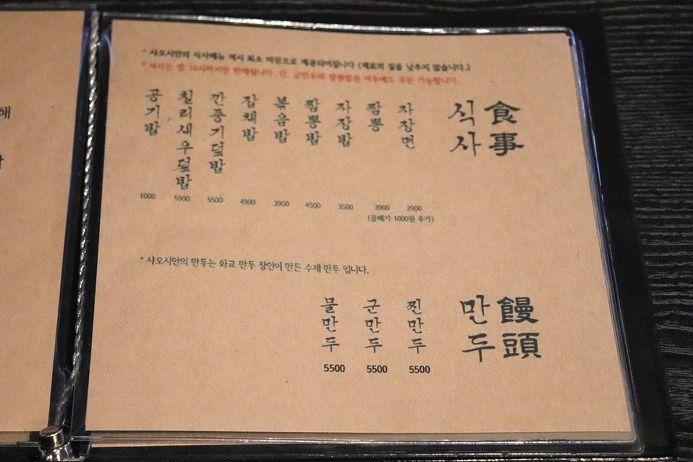 해
* 샤오시안의 식사메뉴 역시 최소 마진으로 제공되어집니다 (재료의 질을 낮추지 않습니다.)
* 식사는 밤 10시까지만 판매됩니다. 단, 군만두와 짬뽕밥은 이후에도 주문 가능합니다.
食事
식사
자장면 2900
짬뽕 3900
(곱빼기·1000원 추가)
자장밥 3500
짬뽕밥 4500
볶음밥 3900
잡채밥 4900
깐풍기덮밥 5500
칠리새우덮밥 5900
공기밥 1000
* 샤오시안의 만두는 화교 만두 장인이 만든 수제 만두 입니다.
饅頭
만두
찐만두 5500
군만두 5500
물만두 5500